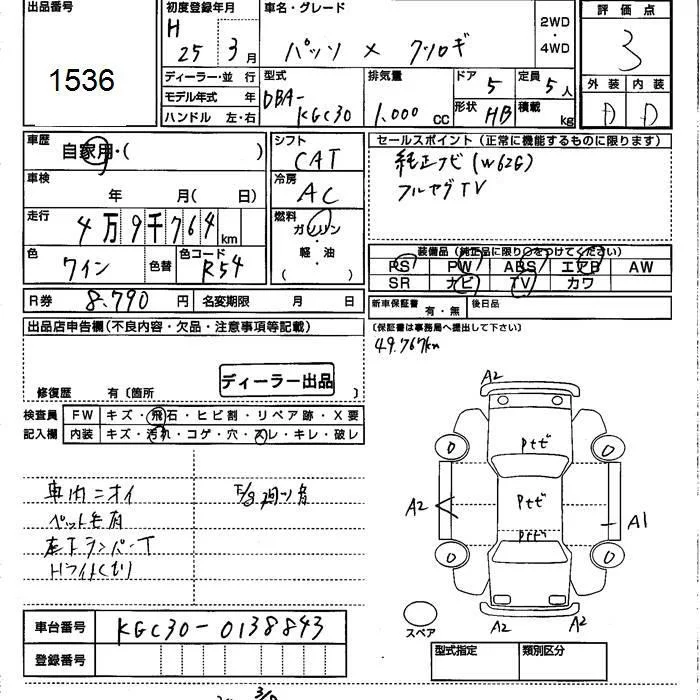 出品番号
1536
初度登録年月
H 25 3月
車名・グレード
パッソ × クツロギ
2WD
・
4WD
評価点
3
外装 内装
D D
ディーラー・並行
モデル年式 年
ハンドル 左・右
型式
DBA-
KGC30
排気量
1,000 cc
ドア 5
形状 HB
定員 5人
積載 kg
車歴
自家用・( )
シフト
CAT
セールスポイント(正常に機能するものに限ります)
純正ナビ(W62G)
フルセグTV
車検
年 月(日)
冷房
AC
走行
4万9千764km
燃料
ガソリン
・
軽・油
( )
色
ワイン
色替
色コード
R54
装備品(純正品に限り○をつけてください)
PS PW ABS エアB AW
SR ナビ TV カワ
R券 8,790円 名変期限 月 日
新車保証書 有・無 後日品
(保証書は事務局へ提出して下さい)
49.767km
出品店申告欄(不良内容・欠品・注意事項等記載)
ディーラー出品
修復歴 有〔箇所 〕
検査員 FW キズ・飛石・ヒビ割・リペア跡・X要
記入欄 内装 キズ・汚れ・コゲ・穴・スレ・キレ・破レ
車内ニオイ
ペット毛有
左下ランバーT
Hライトくもり
A2
Ptビ
Ptビ
Ptビ
A2
A1
0
0
0
0
A2
A2
スペア
車台番号 KGC30-0138843
登録番号
型式指定 類別区分